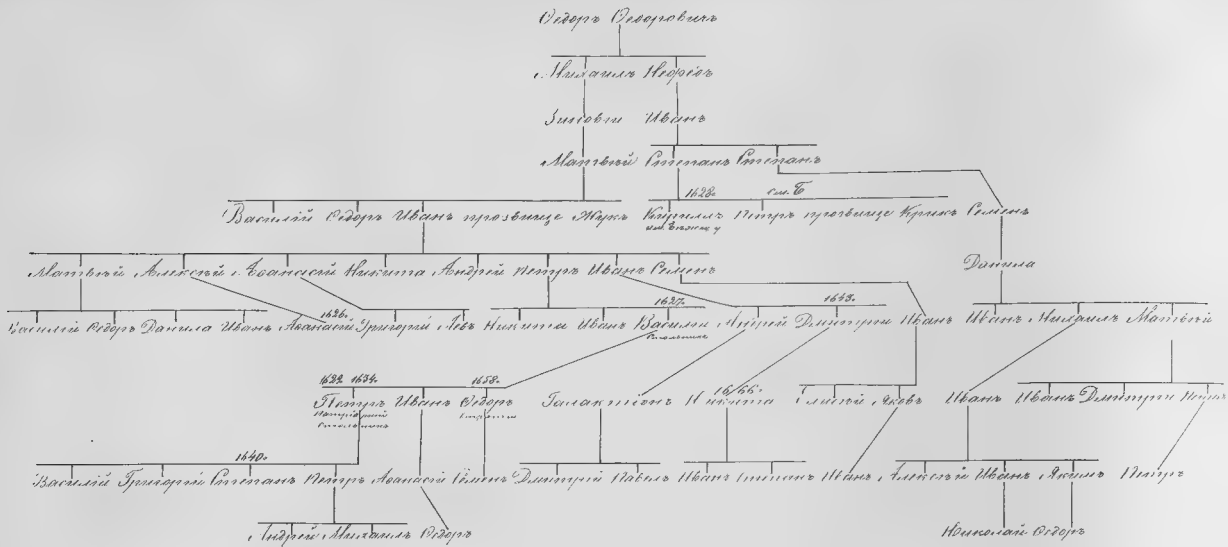 Ѳедоръ Ѳедоровичъ
Михаилъ Нефёдъ
Зиновій Иванъ
Матвѣй Степанъ Степанъ
1628г. см. Б
Василій Ѳедоръ Иванъ прозвище Жукъ Кириллъ Петръ прозвище Крикъ Семенъ
Матвѣй Алексѣй Аѳанасій Никита Андрей Петръ Иванъ Семенъ Данила
1626г. 1627г.
Василій Ѳедоръ Данила Иванъ Аѳанасій Григорій Левъ Никита Иванъ Василій Андрей Дмитрій Иванъ Иванъ Михаилъ Матвѣй
Стольникъ
1658г.
Петръ Иванъ Ѳедоръ Галактіонъ Никита Яковъ Иванъ Иванъ Дмитрій
Стольникъ
1640г.
Василій Григорій Степанъ Петръ Аѳанасій Семенъ Дмитрій Павелъ Иванъ Степанъ Иванъ Алексѣй Иванъ Якимъ Петръ
Андрей Михаилъ Ѳедоръ Николай Ѳедоръ